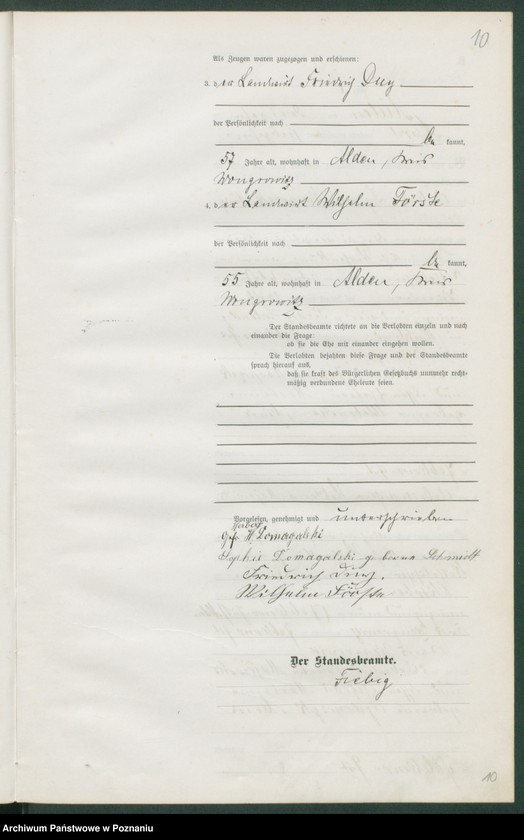 10
Als Zeugen waren zugezogen und erschienen:
3. der Landwirt Friedrich
der Persönlichkeit nach
be kannt,
57 Jahre alt, wohnhaft in Alden, Kreis
Wongrowitz
4. der Landwirt Wilhelm Förste
der Persönlichkeit nach
be kannt,
55 Jahre alt, wohnhaft in Alden, Kreis
Wongrowitz
Der Standesbeamte richtete an die Verlobten einzeln und nach
einander die Frage:
ob sie die Ehe mit einander eingehen wollen.
Die Verlobten bejahten diese Frage und der Standesbeamte
sprach hierauf aus,
daß sie kraft des Bürgerlichen Gesetzbuchs nunmehr recht-
mäßig verbundene Eheleute seien.
Vorgelesen, genehmigt und unterschrieben
Domagalski
Sophie Domagalski geborne Schmidt
Friedrich
Wilhelm Förste
Der Standesbeamte.
Fiebig
10
Archiwum Państwowe w Poznaniu